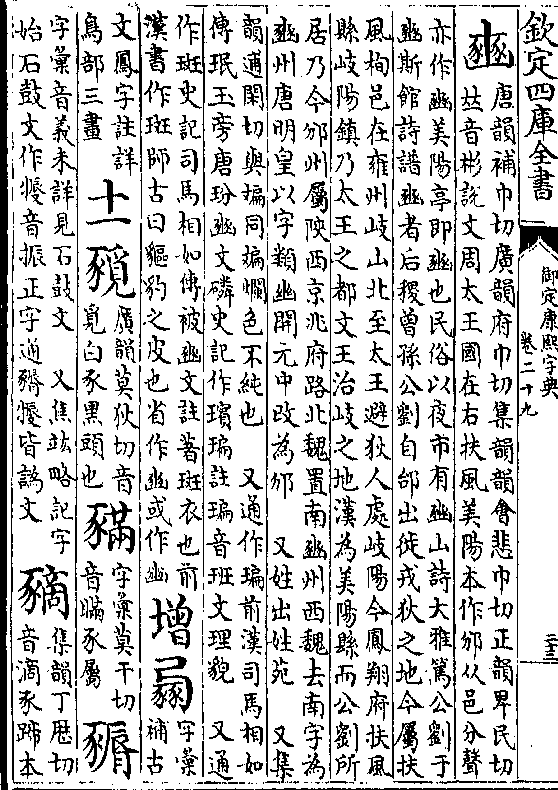 欽定四庫全書
御定康熙字典
卷二十九
三十三
豳 唐韻補巾切廣韻府巾切集韻韻會悲巾切正韻卑民切
𠀤音彬說文周太王國在右扶風美陽本作邠从邑分聲
亦作豳美陽亭即豳也民俗以夜市有豳山詩大雅篤公劉于
豳斯館詩譜豳者后稷曾孫公劉自邰出徙戎狄之地今屬扶
風栒邑在雍州岐山北至太王避狄人處岐陽今鳳翔府扶風
縣岐陽鎮乃太王之都文王治岐之地漢為美陽縣而公劉所
居乃今邠州屬陜西京兆府路北魏置南豳州西魏去南字為
豳州唐明皇以字類幽開元中改為邠 又姓出姓苑 又集
韻逋閑切與斒同斒斕色不純也 又通作瑞前漢司馬相如
傳珉玉旁唐玢豳文磷史記作璸㻞註㻞音班文理貌 又通
作斑史記司馬相如傳被豳文註著斑衣也前
漢書作斑師古曰貙豹之皮也省作豳或作豳
增 字彙補古
文鳳字註詳
鳥部三畫
十一
䝞 廣韻莫狄切音
覓白豕黑頭也
 字彙莫干切
音瞞豕屬
字彙音義未詳見石鼓文 又焦竑略記字
始石鼓文作㹛音振正字通皆譌文
豴 集韻丁歷切
音滴豕蹄本